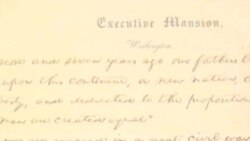 Executive Mansion,
Washington,
score and seven years ago our fathers b
upon this continent, a new nation, c
erty, and dedicated to the proposition
men are created equal"
in a great civil war